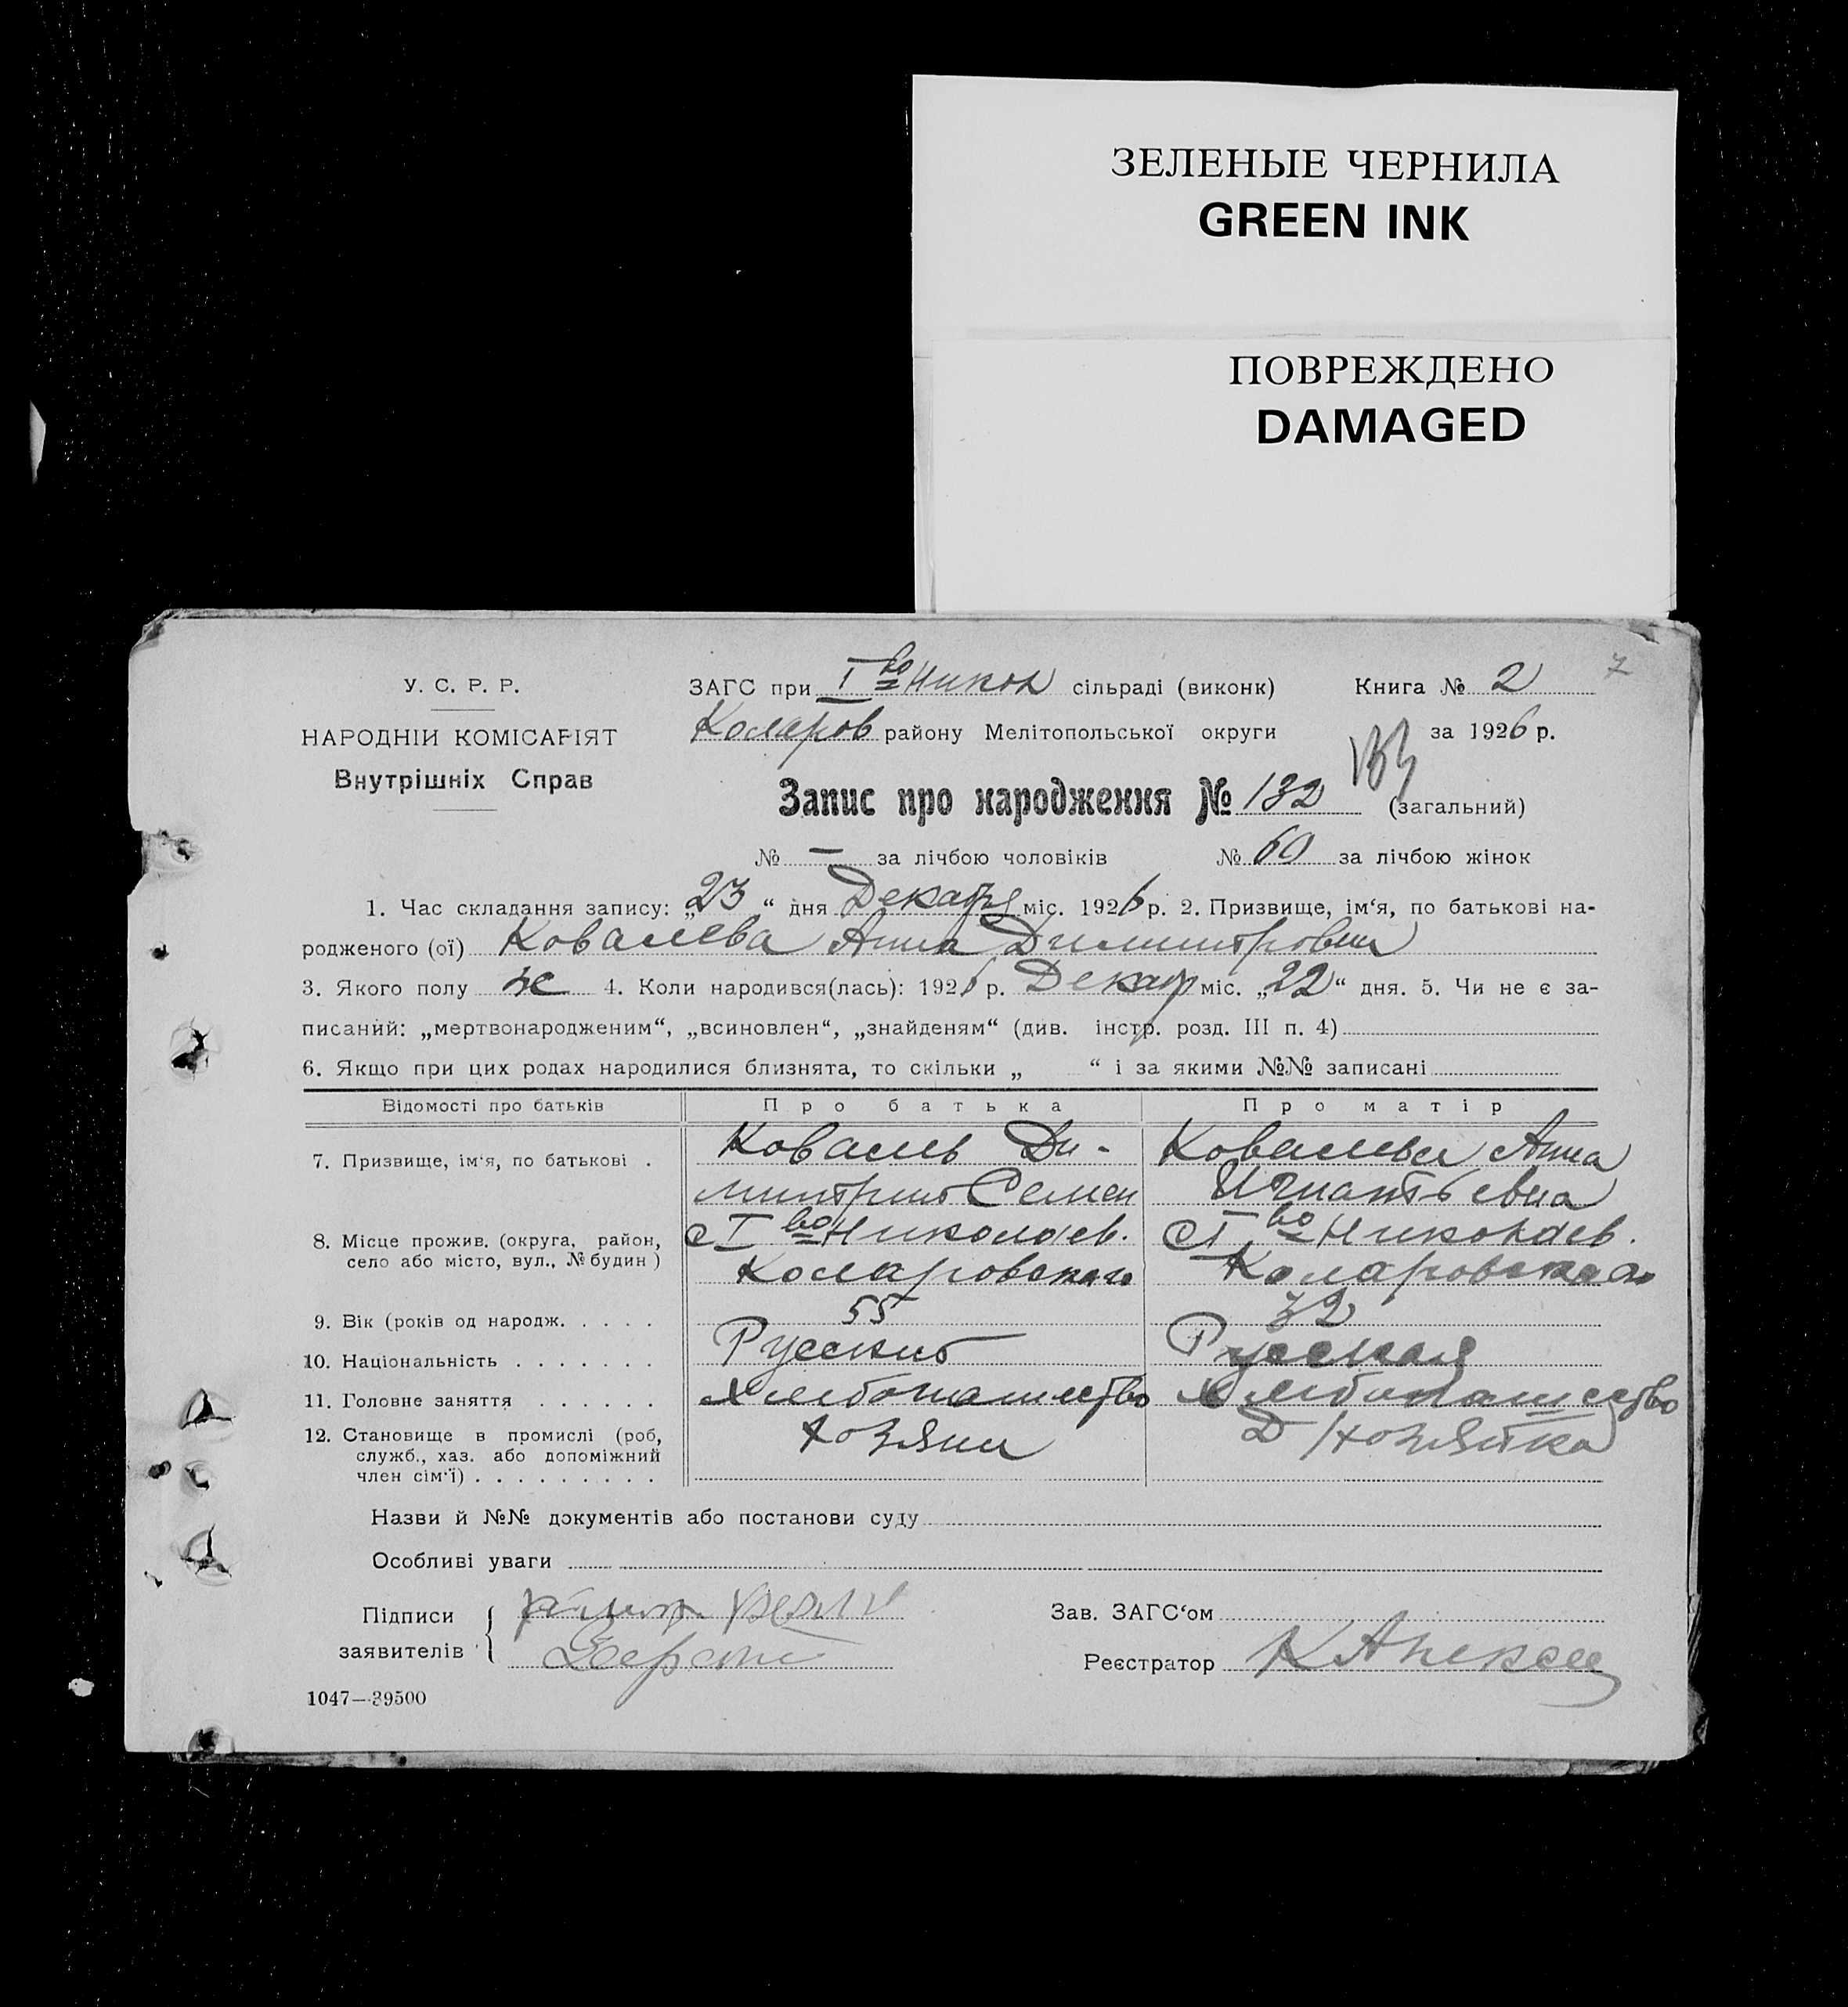 ЗЕЛЕНЫЕ ЧЕРНИЛА
GREEN INK
ПОВРЕЖДЕНО
DAMAGED
7
У. С. Р. Р.
НАРОДНІЙ КОМІСАРІЯТ
Внутрішніх Справ
ЗАГС при Iво Никол сільраді (виконк) Книга № 2
Коларов району Мелітопольської округи за 1926 р.
Запис про народження № 132 (загальний)
№ — за лічбою чоловіків № 60 за лічбою жінок
1. Час складання запису: „23 “ дня Декабря міс. 1926 р. 2. Призвище, ім‘я, по батькові на-
родженого (ої) Ковалева Анна Димитровна
3. Якого полу же 4. Коли народився(лась): 1926 р. Декабр міс. „22“ дня. 5. Чи не є за-
писаний: „мертвонародженим“, „всиновлен“, „знайденям“ (див. інстр. розд. III п. 4)
6. Якщо при цих родах народилися близнята, то скільки „ “ і за якими №№ записані
Відомості про батьків Про батька Про матір
7. Призвище, ім‘я, по батькові . Коваль Ди- Ковалева Анна
митрий Семен Игнатьевна
8. Місце прожив. (округа, район, село або місто, вул., № будин) с Iво Николаев. с Iво Николаев.
Коларовского Коларовского
9. Вік (років од народж. . . . . 55 32
10. Національність . . . . . . . Русский Русская
11. Головне заняття . . . . . . Хлебопашество Хлебопашество
12. Становище в промислі (роб, служб., хаз. або допоміжний член сім‘ї) . . . . . . . . . Хозяин Д/хозяйка
Назви й №№ документів або постанови суду
Особливі уваги
Підписи
заявителів
Зав. ЗАГС‘ом
Реєстратор
1047—39500